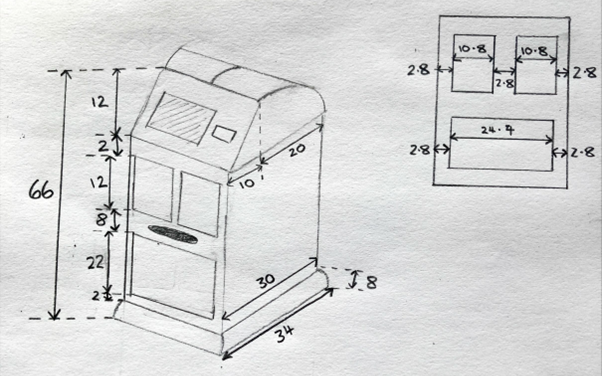 12
2
12
8
22
2
66
10
20
30
34
8
10.8
10.8
2.8
2.8
2.8
24.7
2.8
2.8